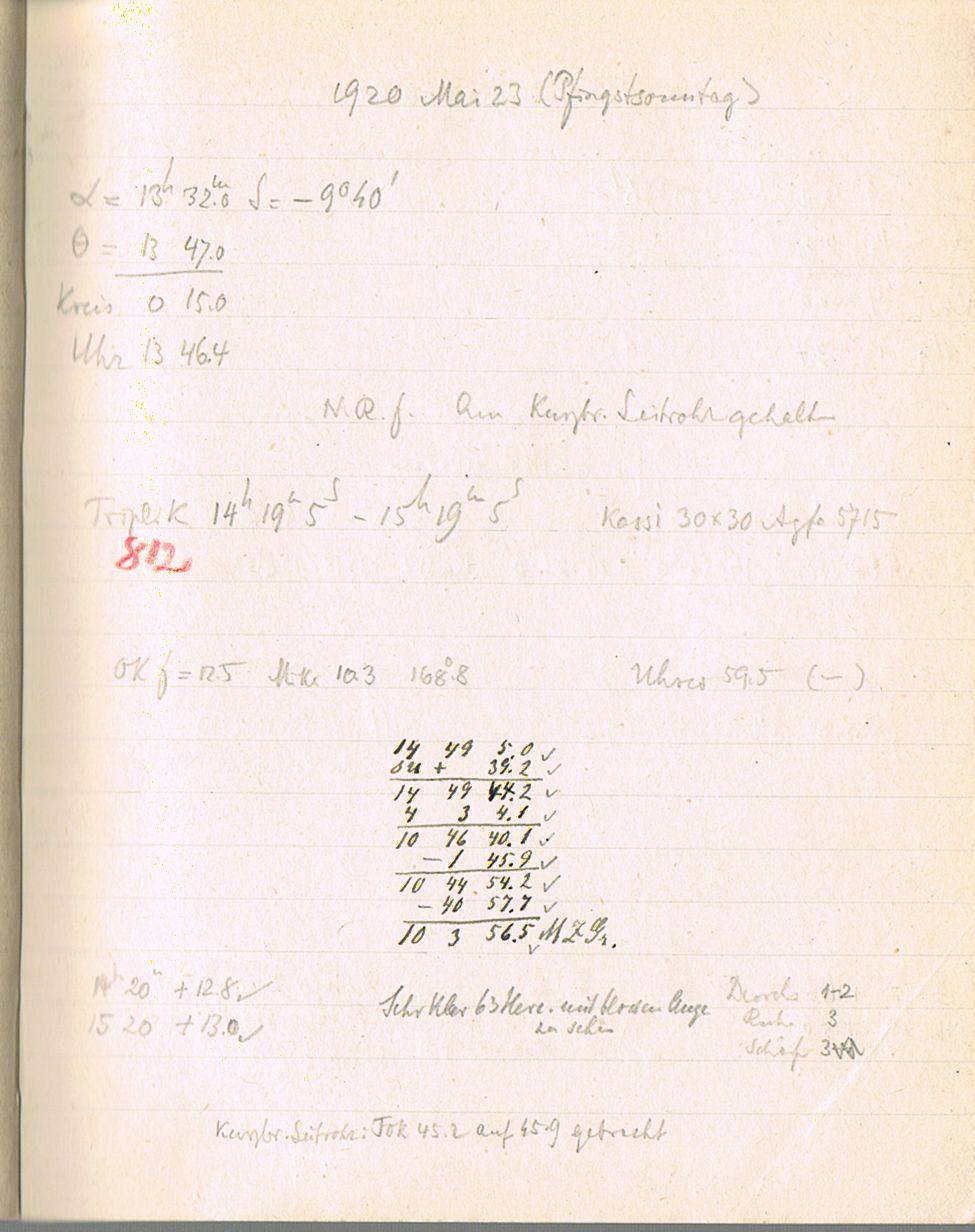 1920 Mai 23 (Pfingstsonntag)
α = 13h 32m.0 δ = −9°40'
θ = 13 47.0
Kreis 0 15.0
Uhr 13 46.4
N.R.f. Am Kurzbr. Leitrohr gehalten
Triplet K 14h 19m 5s – 15h 19m 5s Kassi 30×30 Agfa 5715
812
OK f = 12.5 Mikr 10.3 168°.8 59.5 (–)
14 49 5.0 ✓
Δu + 39.2 ✓
14 49 44.2 ✓
4 3 4.1 ✓
10 46 40.1 ✓
– 1 45.9 ✓
10 44 54.2 ✓
– 40 57.7 ✓
10 3 56.5 ✓ M Z Gr.
14h 20m + 12.8 ✓
15 20 + 13.0 ✓
Sehr klar 63 Herc. mit blossem Auge
zu sehen
Durchs 1-2
Ruhe 3
Schärfe 3
Kurzbr. Leitrohr: FOK 45.2 auf 45.9 gebracht